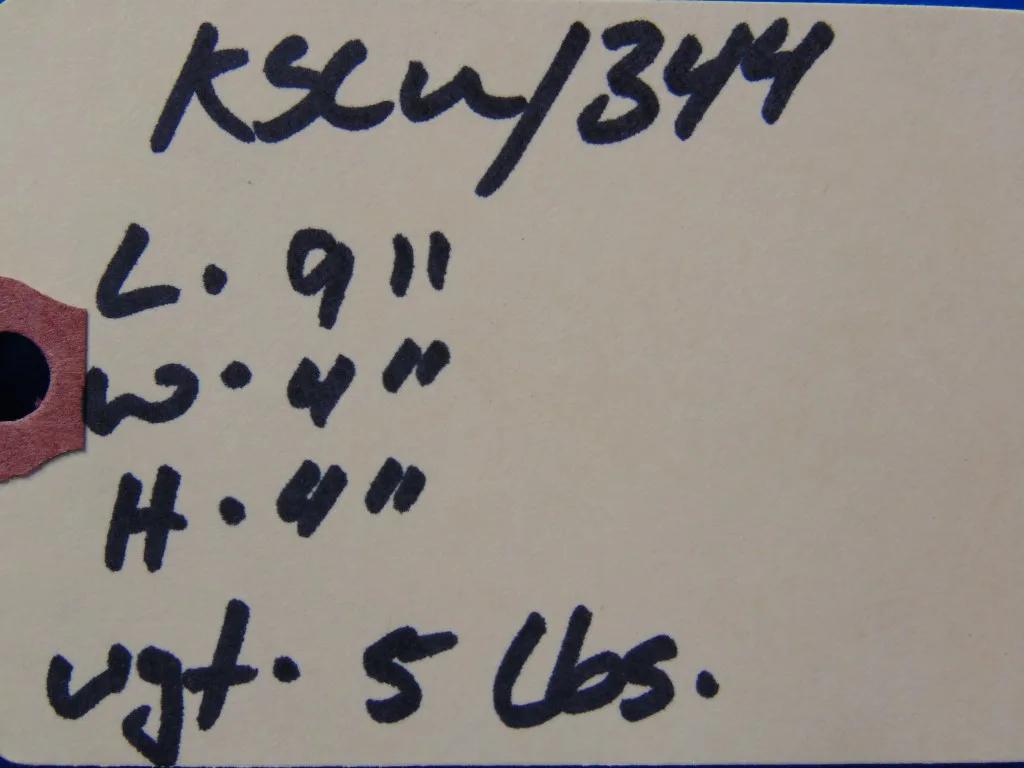 KSCW/344
L. 9"
W. 4"
H. 4"
wgt. 5 Lbs.